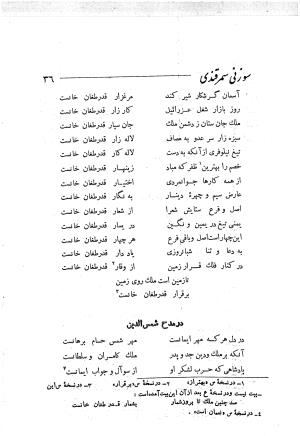 سوزنی سمرقندی ۳۶
آسمان گر شکار شیر کند مرغزار قدرطغان خانست
روز بازار شغل عزرائیل کارزار قدرطغان خانست
ملک جان ستان ز دشمن ملک جان سپار قدرطغان خانست
سبزه زار سر عدو به مصاف لاله زار قدرطغان خانست
تیغ نیلوفری از آنکه به دست لاله کار قدرطغان خانست
صنم را بهترین ۱ ظفر که مباد زینهار قدرطغان خانست
از همه کارها جوانمردی اختیار قدرطغان خانست
عارض سیم و چهرهٔ دینار به نگار قدرطغان خانست
اصل و فرع ستایش شعرا از شعار قدرطغان خانست
یمنی تیغ در یمین و نگین در یسار قدرطغان خانست
این چهار است اصل و باقی فرع هر چهار قدرطغان خانست
به دعا و ثنا شبانروزی یاد دار قدرطغان خانست
در کنار فلک قرار زمین از وقار ۲ قدرطغان خانست
تا زمین است ملک روی زمین
برقرار قدرطغان خانست ۳
در مدح شمس‌الدین
در دل هر کسه مهر ایمانست مهر شمس حسام برهانست
آنکه بر ملک و دین جد و پدر ملک کامران و سلطانست
پادشاهی که حرب لشکر او از سؤال و جواب ایمانست ۴
۱ـ در نسخهٔ س «بهتر از» ۲ـ در نسخهٔ س «برقرار» ۳ـ در نسخهٔ س این
بیت نیست و در نسخهٔ ع بعد از آن این بیت آمده است:
صد چنین ملک تا بروز شمار یشمار قدرطغان خانست
۴ـ در نسخهٔ س «نسان است».